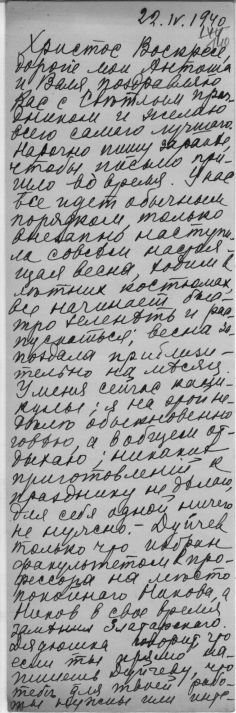 22.IV.1940
Христос Воскресе
дорогие мои Антоша
и Валя поздравляю
Вас с Светлым праз-
дником и желаю
всего самого лучшего.
Нарочно пишу заранее,
чтобы письмо при-
шло во время. У нас
все идет обычным
порядком, только
внезапно наступи-
ла совсем настоя-
щая весна, ходим в
летних костюмах,
все начинает быс-
тро зеленеть и рас-
пускаться; весна за-
поздала приблизи-
тельно на месяц.
У меня сейчас кани-
кулы; я на этой не-
делю обыкновенно
говею, а в общем от-
дыхаю; никаких
приготовлений к
празднику не делаю,
для себя одной ничего
не нужно. – Дуйчев
только что избран
факультетом в про-
фессора на место
покойного Никова, а
Ников в свое время
заменил Златарского.
Дядюшка говорит что
если ты прямо на-
пишешь Дуйчеву, что
тебе для твоей рабо-
ты нужны или инте-